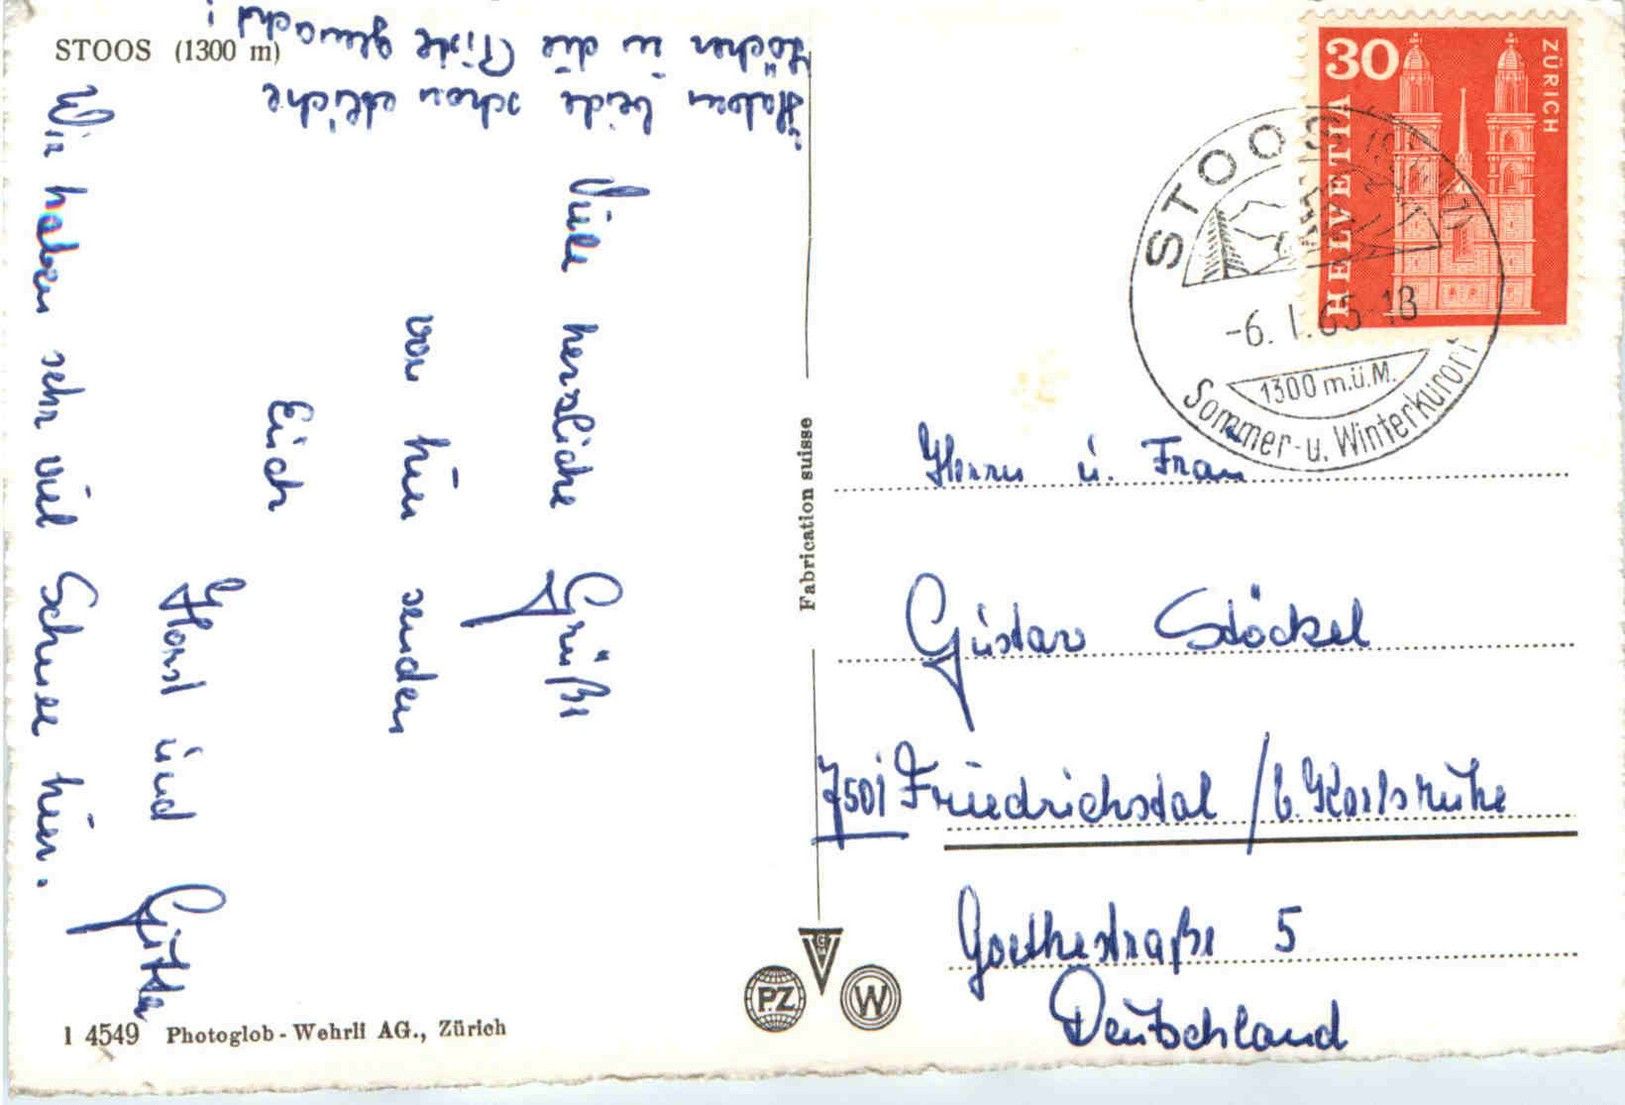 STOOS (1300 m)
Viele herzliche Grüße
von hier senden
Euch
Horst und
Wir haben sehr viel Schnee hier.
Haben beide schon etliche
Löcher in die Piste gemacht!
Fabrication suisse
1 4549 Photoglob-Wehrli AG., Zürich
PZ
W
30
HELVETIA
ZÜRICH
STOOS
-6. I. 65-18
1300 m.ü.M.
Sommer- u. Winterkurort
Herrn u. Frau
Gustav Stöckel
7501 Friedrichstal / b. Karlsruhe
Goethestraße 5
Deutschland